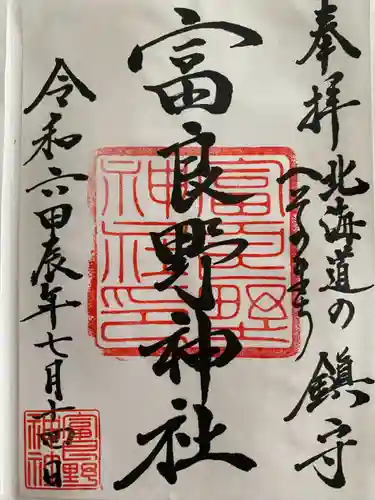 奉拝
北海道の
へそのまちの
鎮守
富良野神社
富良野神社印
令和六甲辰年七月十四日
富良野神社